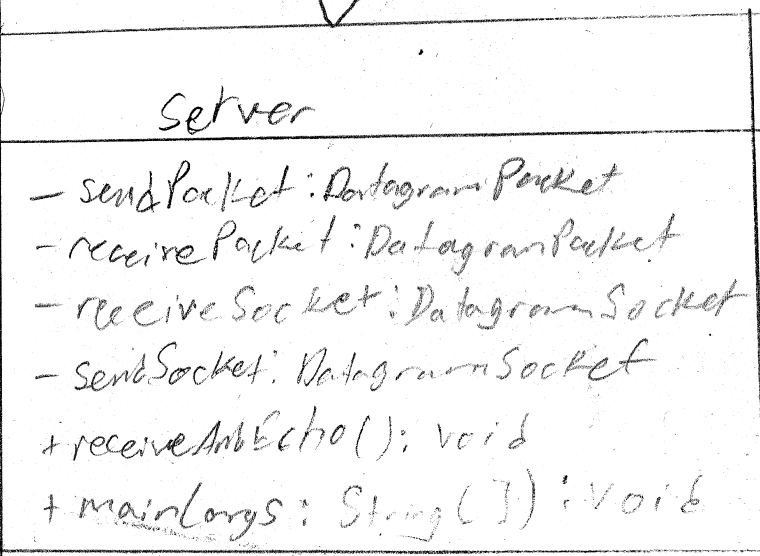 Server
- sendPacket : DatagramPacket
- receivePacket : DatagramPacket
- receiveSocket : DatagramSocket
- sendSocket : DatagramSocket
+ receiveAndEcho() : void
+ main(args : String[]) : void